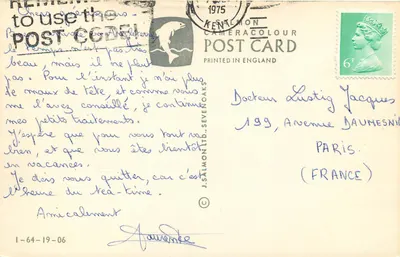 REMEMBER
to use the
POST CODE!
1975
KENT
SALMON
CAMERACOLOUR
POST CARD
PRINTED IN ENGLAND
6P
le temps n'est pas très
beau, mais il ne pleut
pas. Pour l'instant je n'ai plus
de maux de tête, et comme vous
me l'avez conseillé, je continue
mes petits traitements.
J'espère que pour vous tout va
bien, et que vous êtes bientôt
en vacances.
Je dois vous quitter, car c'est
l'heure du tea-time.
Amicalement
Laurence
1-64-19-06
© J. SALMON LTD., SEVENOAKS
Docteur Lustig Jacques
199, Avenue DAUMESNIL
PARIS.
(FRANCE)